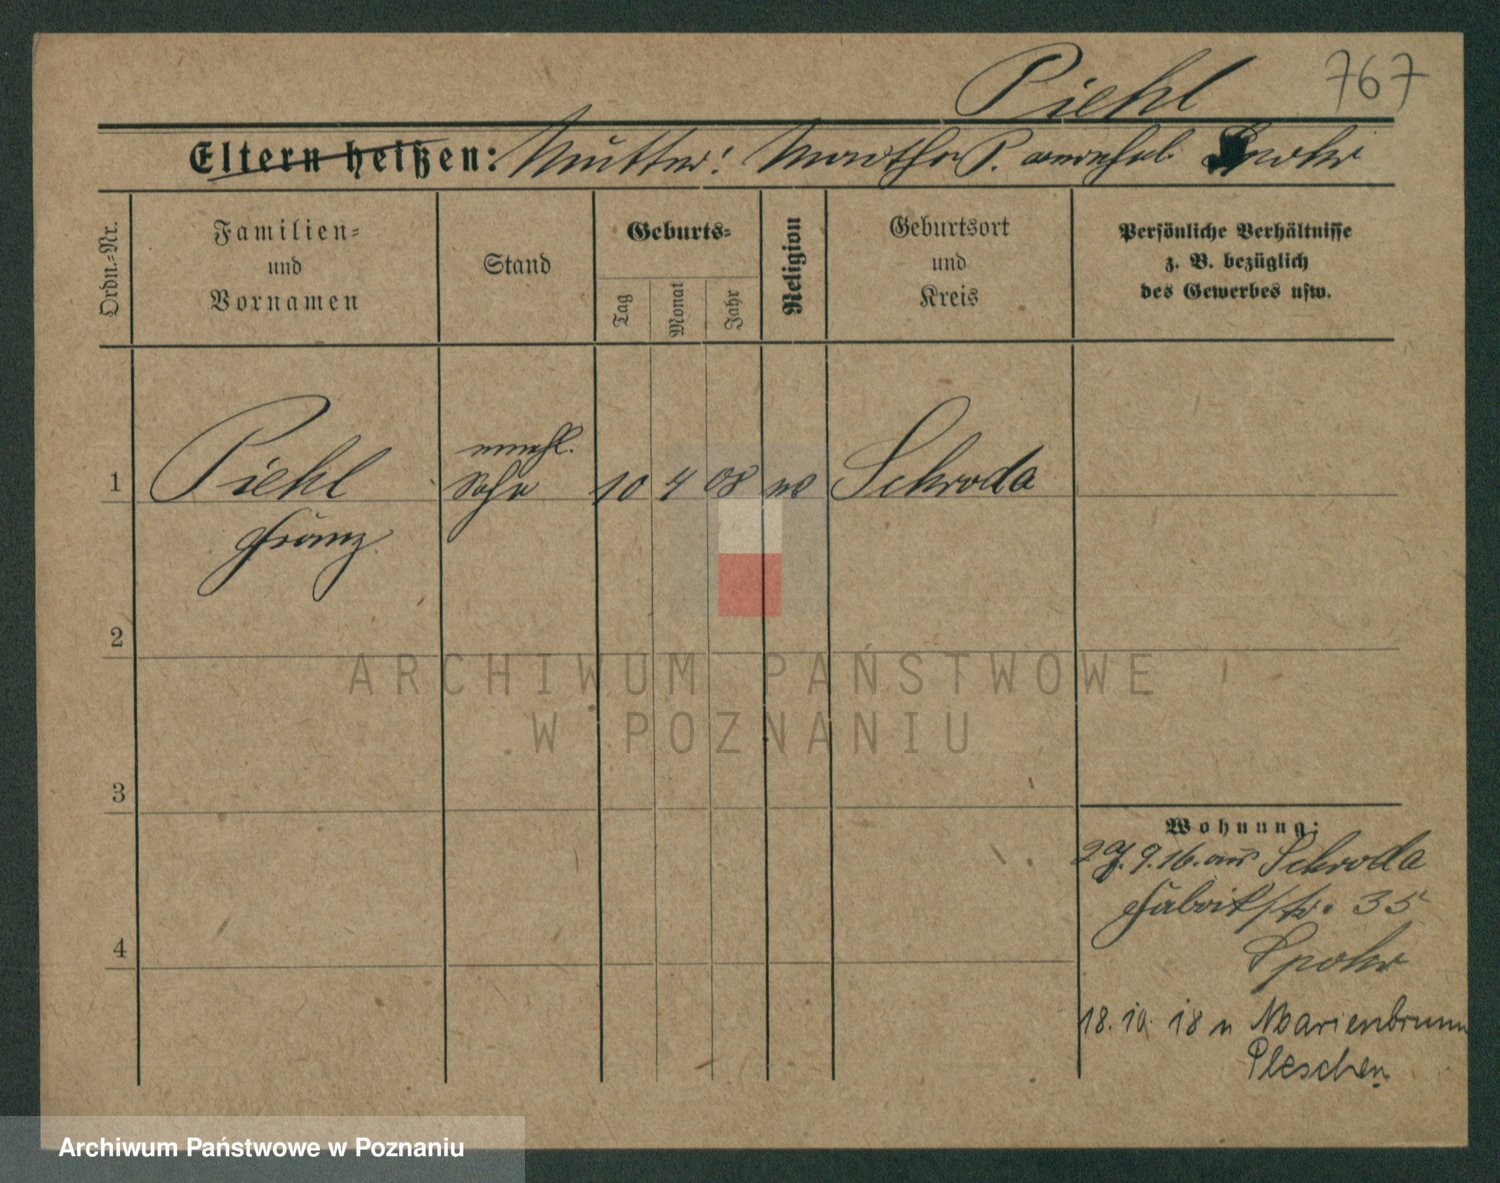 Piehl 767
Eltern heißen: Mutter: Martha P. verehel. Spohr
Ordn.-Nr.
Familien-
und
Vornamen
Stand
Geburts-
Tag
Monat
Jahr
Religion
Geburtsort
und
Kreis
Persönliche Verhältnisse
z. B. bezüglich
des Gewerbes usw.
unehl.
1 Piehl Sohn 10 4 08 Schroda
Franz
2
3
4
Wohnung:
27. 9. 16. aus Schroda
Fabrikstr. 35
Spohr
18. 10. 18 n Marienbrunn
Pleschen
ARCHIWUM PAŃSTWOWE
W POZNANIU
Archiwum Państwowe w Poznaniu